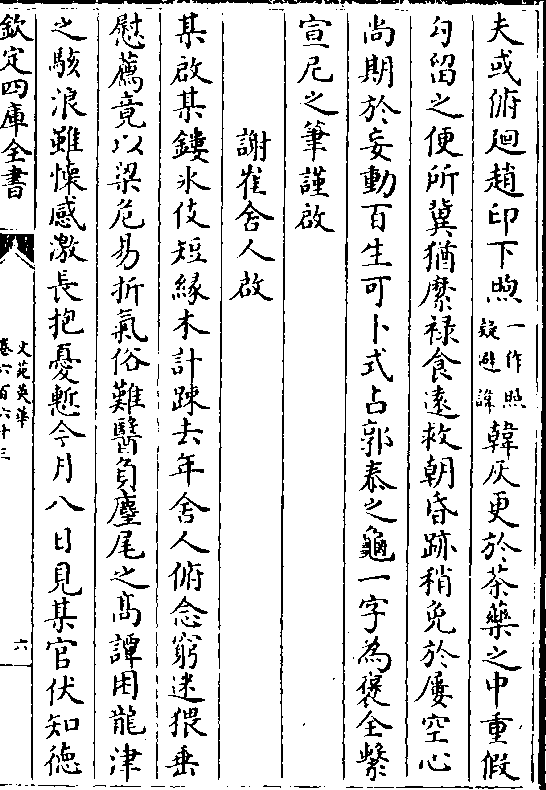 夫或俯迴趙印下煦一作照疑避諱韓灰更於茶藥之中重假
勾留之便所冀猶縻禄食遠救朝昏跡稍免於屢空心
尚期於妄動百生可卜式占郭泰之龜一字為褒全繫
宣尼之筆謹啟
謝崔舍人啟
某啟某鏤氷伎短緣木計踈去年舍人俯念窮迷猥垂
慰薦竟以梁危易折氣俗難醫負麈尾之髙譚困龍津
之駭浪雖懐感激長抱憂慙今月八日見某官伏知徳
欽定四庫全書
文苑英華
卷六百六十三
六